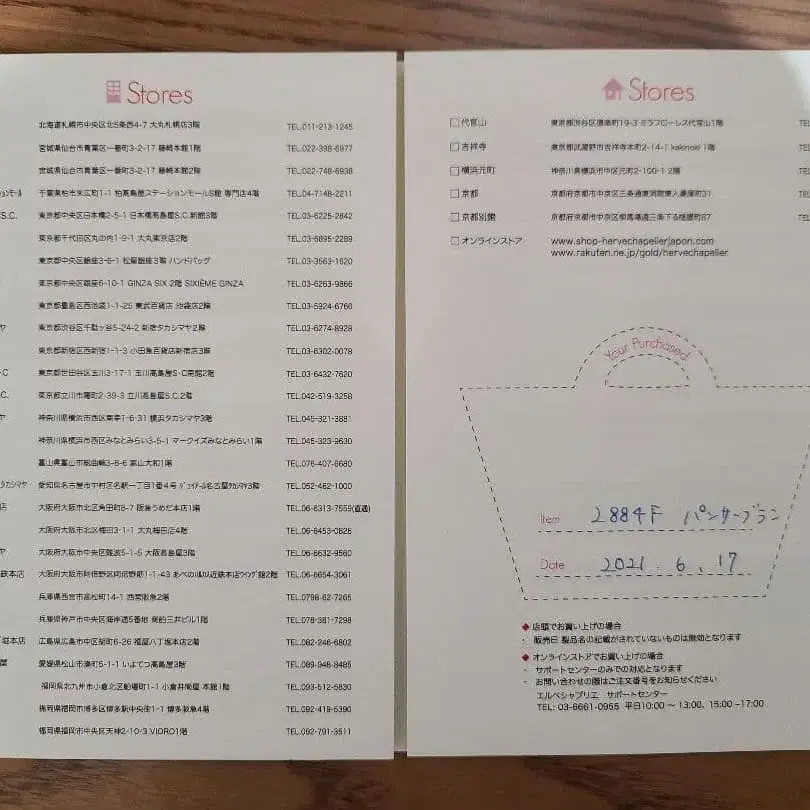 Stores
北海道札幌市中央区北5条西4-7 大丸札幌店3階 TEL.011-213-1245
宮城県仙台市青葉区一番町3-2-17 藤崎本館1階 TEL.022-398-6977
宮城県仙台市青葉区一番町3-2-17 藤崎本館2階 TEL.022-748-6938
千葉県柏市末広町1-1 柏高島屋ステーションモールS館 専門店4階 TEL.04-7148-2211
S.C. 東京都中央区日本橋2-5-1 日本橋高島屋S.C.新館3階 TEL.03-6225-2842
東京都千代田区丸の内1-9-1 大丸東京店2階 TEL.03-6895-2289
東京都中央区銀座3-6-1 松屋銀座3階 ハンドバッグ TEL.03-3563-1620
東京都中央区銀座6-10-1 GINZA SIX 2階 SIXIÈME GINZA TEL.03-6263-9866
東京都豊島区西池袋1-1-25 東武百貨店 池袋店2階 TEL.03-5924-6766
ヤ 東京都渋谷区千駄ヶ谷5-24-2 新宿タカシマヤ2階 TEL.03-6274-8928
東京都新宿区西新宿1-1-3 小田急百貨店新宿店3階 TEL.03-6302-0078
・C 東京都世田谷区玉川3-17-1 玉川高島屋S・C南館2階 TEL.03-6432-7620
C. 東京都立川市曙町2-39-3 立川高島屋S.C.2階 TEL.042-519-3258
ヤ 神奈川県横浜市西区南幸1-6-31 横浜タカシマヤ3階 TEL.045-321-3881
神奈川県横浜市西区みなとみらい3-5-1 マークイズみなとみらい1階 TEL.045-323-9630
富山県富山市総曲輪3-8-6 富山大和1階 TEL.076-407-6680
タカシマヤ 愛知県名古屋市中村区名駅一丁目1番4号 ジェイアール名古屋タカシマヤ3階 TEL.052-462-1000
店 大阪府大阪市北区角田町8-7 阪急うめだ本店1階 TEL.06-6313-7559(直通)
大阪府大阪市北区梅田3-1-1 大丸梅田店4階 TEL.06-6453-0828
ヤ 大阪府大阪市中央区難波5-1-5 大阪高島屋3階 TEL.06-6632-9560
鉄本店 大阪府大阪市阿倍野区阿倍野筋1-1-43 あべのハルカス近鉄本店ウイング館2階 TEL.06-6654-3061
兵庫県西宮市高松町14-1 西宮阪急2階 TEL.0798-62-7265
兵庫県神戸市中央区海岸通5番地 商船三井ビル1階 TEL.078-381-7298
本店 広島県広島市中区胡町6-26 福屋八丁堀本店2階 TEL.082-246-6802
屋 愛媛県松山市湊町5-1-1 いよてつ高島屋3階 TEL.089-948-3485
福岡県北九州市小倉北区船場町1-1 小倉井筒屋 本館1階 TEL.093-512-5830
福岡県福岡市博多区博多駅中央街1-1 博多阪急4階 TEL.092-419-5390
福岡県福岡市中央区天神2-10-3 VIORO1階 TEL.092-791-3511
Stores
□代官山 東京都渋谷区猿楽町19-3 ミラフローレス代官山1階 TEL
□吉祥寺 東京都武蔵野市吉祥寺本町2-14-7 kakinoki 1階 TEL
□横浜元町 神奈川県横浜市中区元町2-100-1 2階 TEL
□京都 京都府京都市中京区三条通東洞院東入菱屋町31 TEL
□京都別館 京都府京都市中京区柳馬場通三条下る槌屋町87 TEL
□オンラインストア www.shop-hervechapelierjapon.com
www.rakuten.ne.jp/gold/hervechapelier
Your Purchased
Item 2884F パンサーブラン
Date 2021.6.17
◆店頭でお買い上げの場合
・ 販売日 製品名の記載がされていないものは無効となります
◆オンラインストアでお買い上げの場合
・ サポートセンターのみでの対応となります
・ お問い合わせの際はご注文番号をお知らせください
エルベシャプリエ サポートセンター
TEL: 03-6661-0955 平日10:00～13:00、15:00-17:00